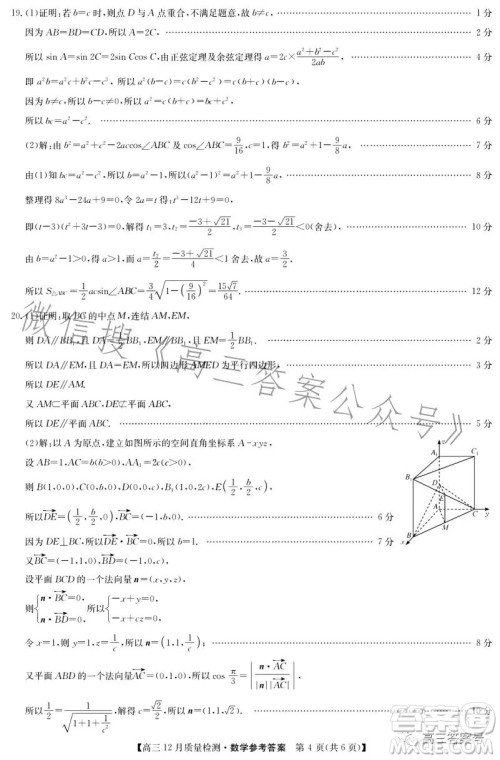 19. (1)证明:若b=c时,则点D与A点重合,不满足题意,故b≠c. 1分
因为AB=BD=CD,所以A=2C, 2分
所以 sin A=sin 2C=2sin Ccos C,由正弦定理及余弦定理得a=2c×(a²+b²-c²)/2ab, 4分
即a²b=a²c+b²c-c³,所以a²(b-c)=c(b²-c²)=c(b+c)(b-c),
因为b≠c,所以b-c≠0,所以a²=c(b+c)=bc+c²,
所以bc=a²-c². 6分
(2)解:由b²=a²+c²-2accos∠ABC及cos∠ABC=9/16,c=1,得b²=a²+1-9/8 a, 7分
由(1)知bc=a²-c²,所以b=a²-1,所以(a²-1)²=a²+1-9/8 a, 8分
整理得8a³-24a+9=0,令2a=t得:t³-12t+9=0,
即(t-3)(t²+3t-3)=0,解得t₁=3,t₂=(-3+√21)/2,t₃=(-3-√21)/2<0(舍去); 10分
由b=a²-1>0,得a>1,而a=t₂/2=(-3+√21)/4<1舍去,故a=3/2.
所以S△ABC=1/2 acsin∠ABC=3/4 √(1-(9/16)²)=15√7/64. 12分
20. (1)证明:取BC的中点M,连结AM,EM,
则DA∥BB₁,且DA=1/2 BB₁,EM∥BB₁,且EM=1/2 BB₁. 2分
所以DA∥EM,且DA=EM,所以四边形AMED为平行四边形, 3分
所以DE∥AM.
又AM⊂平面ABC,DE⊄平面ABC,
所以DE∥平面ABC. 5分
(2)解:以A为原点,建立如图所示的空间直角坐标系A-xyz,
设AB=1,AC=b(b>0),AA₁=2c(c>0),
则B(1,0,0),C(0,b,0),D(0,0,c),B₁(1,0,2c),E(1/2,b/2,c),
所以DE=(1/2,b/2,0),BC=(-1,b,0). 6分
因为DE⊥BC,所以DE·BC=0,所以b=1. 7分
又BC=(-1,1,0),BD=(-1,0,c),
设平面BCD的一个法向量n=(x,y,z),
则{n·BC=0, n·BD=0, 所以{-x+y=0, -x+cz=0.
令x=1,得y=1,z=1/c,所以n=(1,1,1/c); 8分
又平面ABD的一个法向量AC=(0,1,0),所以cos π/3=|n·AC/|n||AC||
所以1/2=1/√(1+1+1/c²),解得c=√2/2,所以n=(1,1,√2).
A₁
C₁
B₁
D
E
A
C
y
M
B
x
【高三12月质量检测·数学参考答案 第4页(共6页)】
微信搜《高三答案公众号》
高三答案号